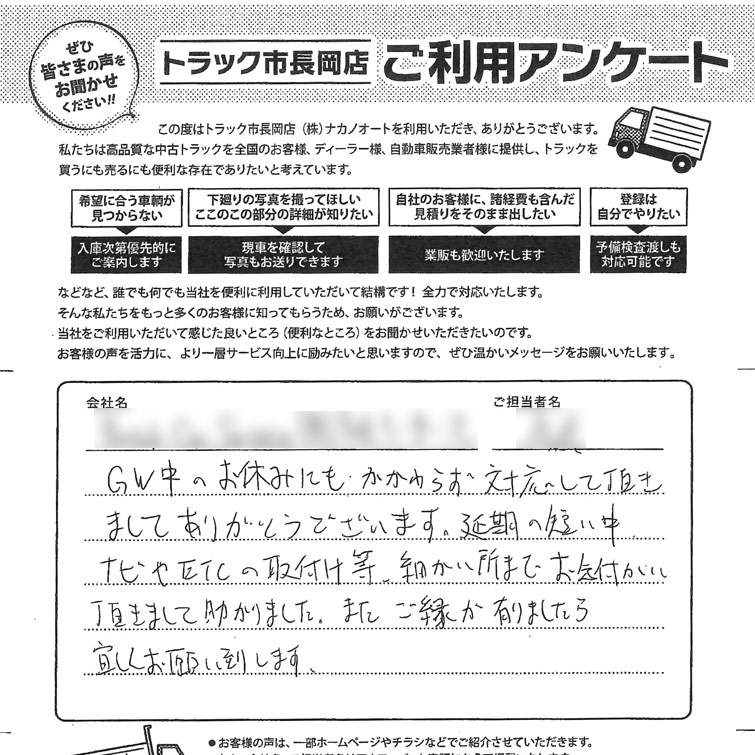 ぜひ
皆さまの声を
お聞かせ
ください!!
トラック市長岡店 ご利用アンケート
この度はトラック市長岡店（株）ナカノオートを利用いただき、ありがとうございます。
私たちは高品質な中古トラックを全国のお客様、ディーラー様、自動車販売業者様に提供し、トラックを
買うにも売るにも便利な存在でありたいと考えています。
希望に合う車輌が
見つからない
入庫次第優先的に
ご案内します
下廻りの写真を撮ってほしい
ここのこの部分の詳細が知りたい
現車を確認して
写真もお送りできます
自社のお客様に、諸経費も含んだ
見積りをそのまま出したい
業販も歓迎いたします
登録は
自分でやりたい
予備検査渡しも
対応可能です
などなど、誰でも何でも当社を便利に利用していただいて結構です！全力で対応いたします。
そんな私たちをもっと多くのお客様に知ってもらうため、お願がございます。
当社をご利用いただいて感じた良いところ（便利なところ）をお聞かせいただきたいのです。
お客様の声を活力に、より一層サービス向上に励みたいと思いますので、ぜひ温かいメッセージをお願いいたします。
会社名
ご担当者名
GW中のお休みにもかかわらず対応して頂き
ましてありがとうございます。延期の短い中
ナビやETCの取付け等、細かい所までお気付かい
頂きまして助かりました。またご縁が有りましたら
宜しくお願い致します。
●お客様の声は、一部ホームページやチラシなどでご紹介させていただきます。